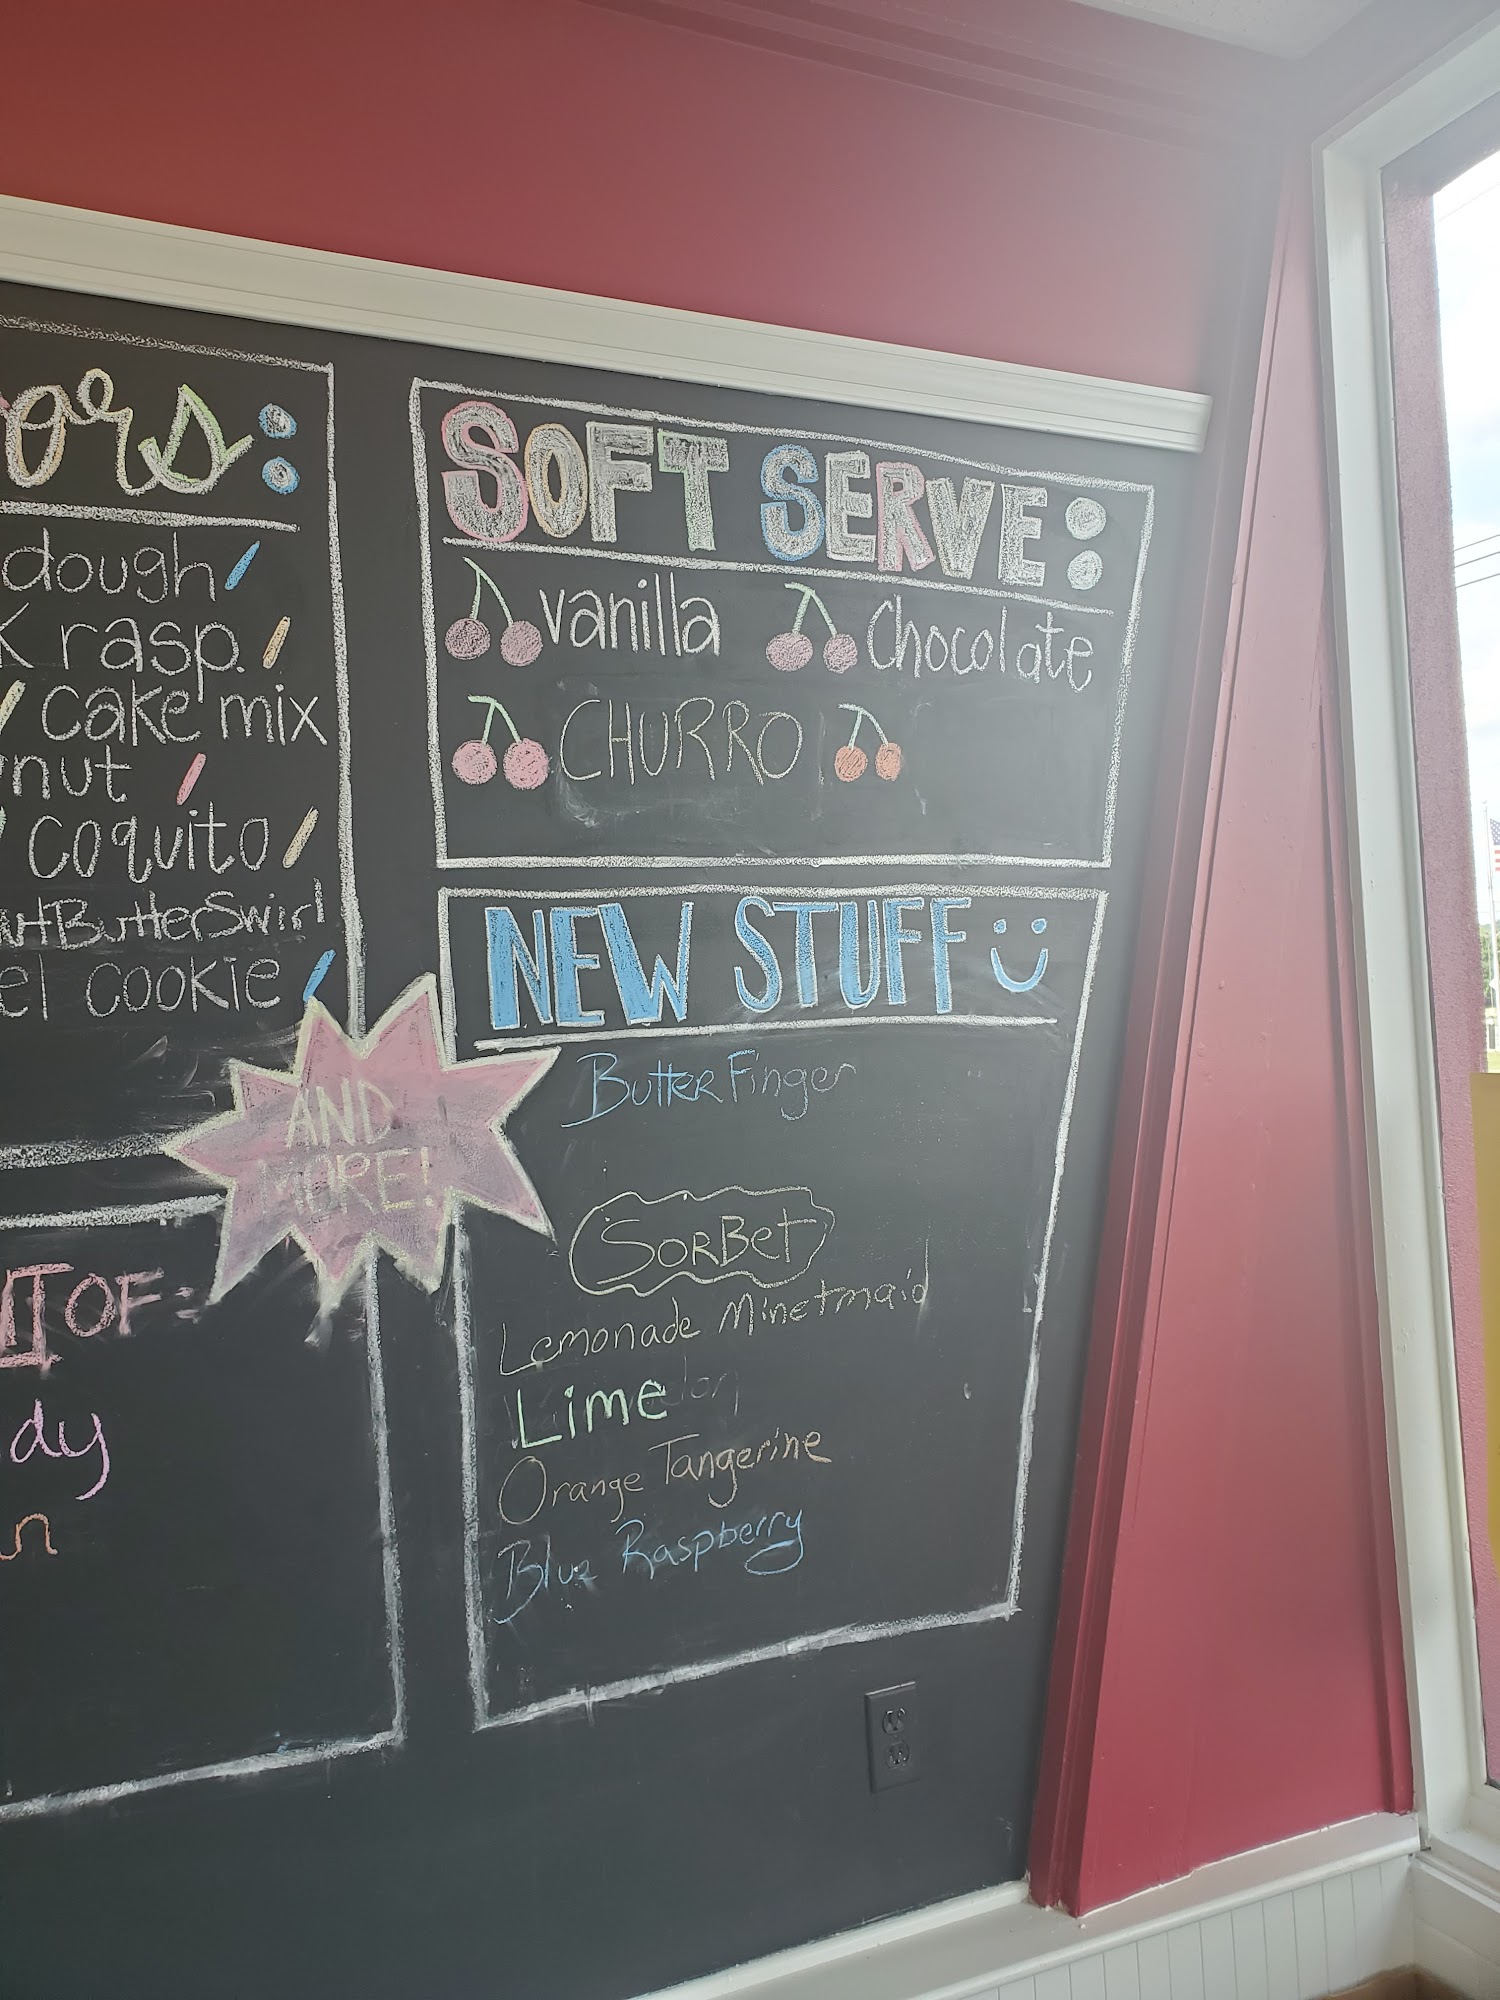 ors:
dough
K rasp.
cake mix
nut
coquito
ButterSwirl
el cookie
AND
MORE!
OF:
dy
n
SOFT SERVE:
vanilla Chocolate
CHURRO
NEW STUFF
Butter Finger
SorBet
Lemonade Minetmaid
Lime
Orange Tangerine
Blue Raspberry